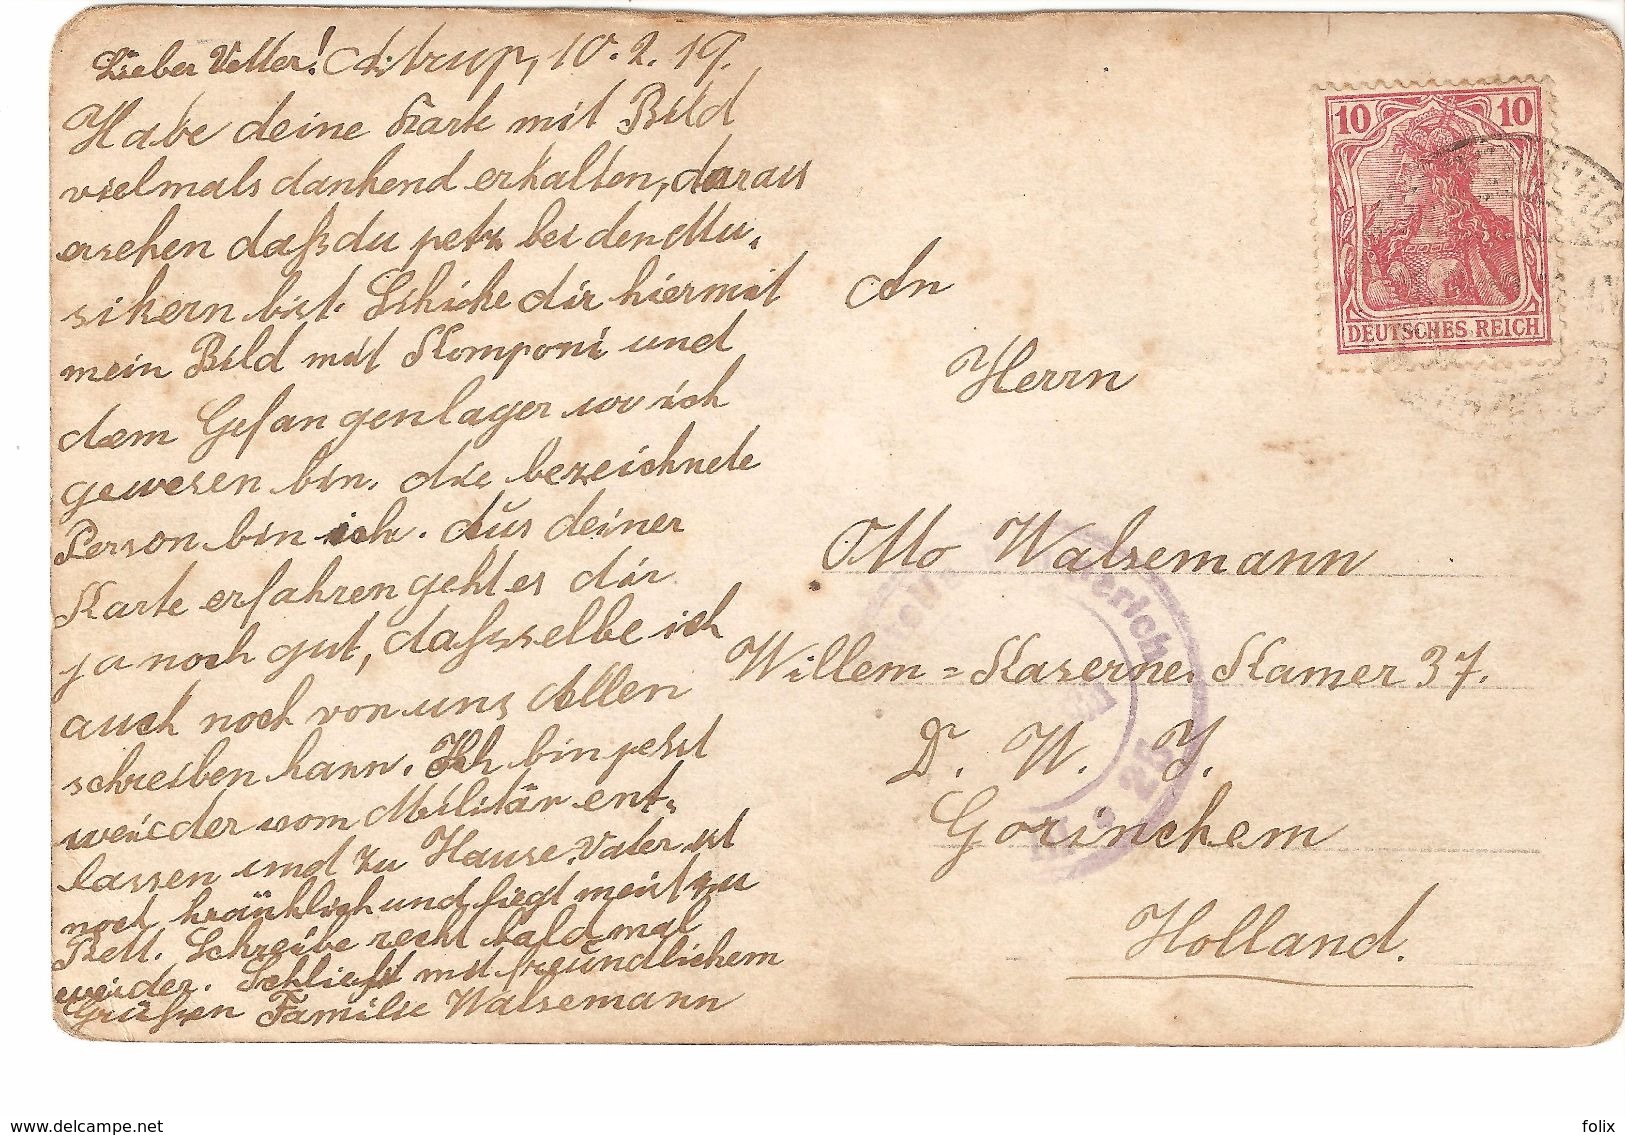 Lieber Vetter! Astrup, 10.2.19.
Habe deine Karte mit Bild
vielmals dankend erhalten, daraus
ersehen daß du petz bei den Mu.
sikern bist. Schicke dir hiermit
mein Bild mit Komponi und
dem Gefangenlager wo ich
gewesen bin. die bezeichnete
Person bin ich. Aus deiner
Karte erfahren geht es dir
ja noch gut, daßselbe ich
auch noch von uns Allen
schreiben kann. Ich bin jetzt
weider vom Militär ent-
lassen und zu Hause. Vater ist
noch kränklich und liegt meist zu
Bett. Schreibe recht bald mal
weider. Schließt mit freundlichem
Grüßen Familie Walsemann
An
Herrn
Otto Walsemann
Willem = Kaserne Kamer 37.
D. W. J.
Gorinchem
Holland.
10 10
DEUTSCHES REICH
25
www.delcampe.net
felix